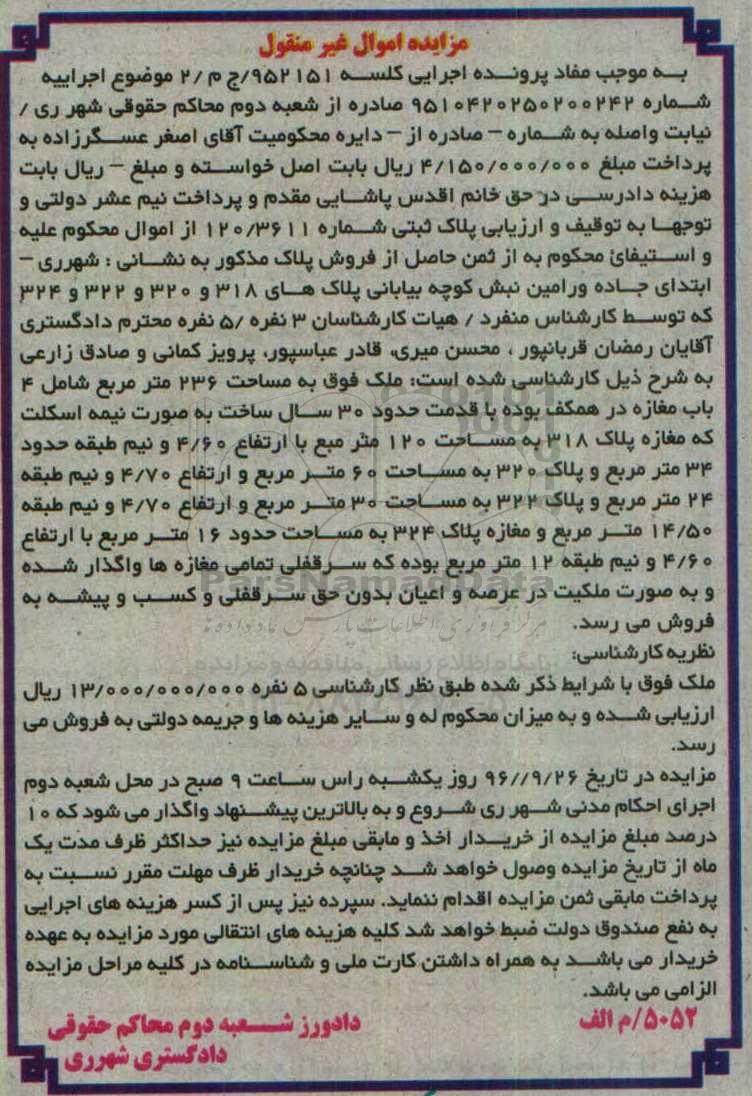 مزایده اموال غیر منقول
به موجب مفاد پرونده اجرایی کلسه ۹۵۲۱۵۱/ج م /۲ موضوع اجراییه
شماره ۹۵۱۰۴۲۰۲۵۰۲۰۰۲۴۲ صادره از شعبه دوم محاکم حقوقی شهر ری /
نیابت واصله به شماره – صادره از – دایره محکومیت آقای اصغر عسگرزاده به
پرداخت مبلغ ۴/۱۵۰/۰۰۰/۰۰۰ ریال بابت اصل خواسته و مبلغ – ریال بابت
هزینه دادرسی در حق خانم اقدس پاشایی مقدم و پرداخت نیم عشر دولتی و
توجها به توقیف و ارزیابی پلاک ثبتی شماره ۱۲۰/۳۶۱۱ از اموال محکوم علیه
و استیفائ محکوم به از ثمن حاصل از فروش پلاک مذکور به نشانی : شهرری –
ابتدای جاده ورامین نبش کوچه بیابانی پلاک های ۳۱۸ و ۳۲۰ و ۳۲۲ و ۳۲۴
که توسط کارشناس منفرد / هیات کارشناسان ۳ نفره /۵ نفره محترم دادگستری
آقایان رمضان قربانپور ، محسن میری، قادر عباسپور، پرویز کمانی و صادق زارعی
به شرح ذیل کارشناسی شده است: ملک فوق به مساحت ۲۳۶ متر مربع شامل ۴
باب مغازه در همکف بوده با قدمت حدود ۳۰ سال ساخت به صورت نیمه اسکلت
که مغازه پلاک ۳۱۸ به مساحت ۱۲۰ متر مبع با ارتفاع ۴/۶۰ و نیم طبقه حدود
۳۴ متر مربع و پلاک ۳۲۰ به مساحت ۶۰ متر مربع و ارتفاع ۴/۷۰ و نیم طبقه
۲۴ متر مربع و پلاک ۳۲۲ به مساحت ۳۰ متر مربع و ارتفاع ۴/۷۰ و نیم طبقه
۱۴/۵۰ متر مربع و مغازه پلاک ۳۲۴ به مساحت حدود ۱۶ متر مربع با ارتفاع
۴/۶۰ و نیم طبقه ۱۲ متر مربع بوده که سرقفلی تمامی مغازه ها واگذار شده
ParsNamadData
و به صورت ملکیت در عرصه و اعیان بدون حق سرقفلی و کسب و پیشه به
فروش می رسد.
مرکز فرآوری اطلاعات پارس نماد داده ها
نظریه کارشناسی:
پایگاه اطلاع رسانی مناقصه و مزایده
ملک فوق با شرایط ذکر شده طبق نظر کارشناسی ۵ نفره ۱۳/۰۰۰/۰۰۰/۰۰۰ ریال
ارزیابی شده و به میزان محکوم له و سایر هزینه ها و جریمه دولتی به فروش می
رسد.
مزایده در تاریخ ۹۶//۹/۲۶ روز یکشبه راس ساعت ۹ صبح در محل شعبه دوم
اجرای احکام مدنی شهر ری شروع و به بالاترین پیشنهاد واگذار می شود که ۱۰
درصد مبلغ مزایده از خریدار اخذ و مابقی مبلغ مزایده نیز حداکثر ظرف مدت یک
ماه از تاریخ مزایده وصول خواهد شد چنانچه خریدار ظرف مهلت مقرر نسبت به
پرداخت مابقی ثمن مزایده اقدام ننماید. سپرده نیز پس از کسر هزینه های اجرایی
به نفع صندوق دولت ضبط خواهد شد کلیه هزینه های انتقالی مورد مزایده به عهده
خریدار می باشد به همراه داشتن کارت ملی و شناسنامه در کلیه مراحل مزایده
الزامی می باشد.
۵۰۵۲/م الف
دادورز شعبه دوم محاکم حقوقی
دادگستری شهرری